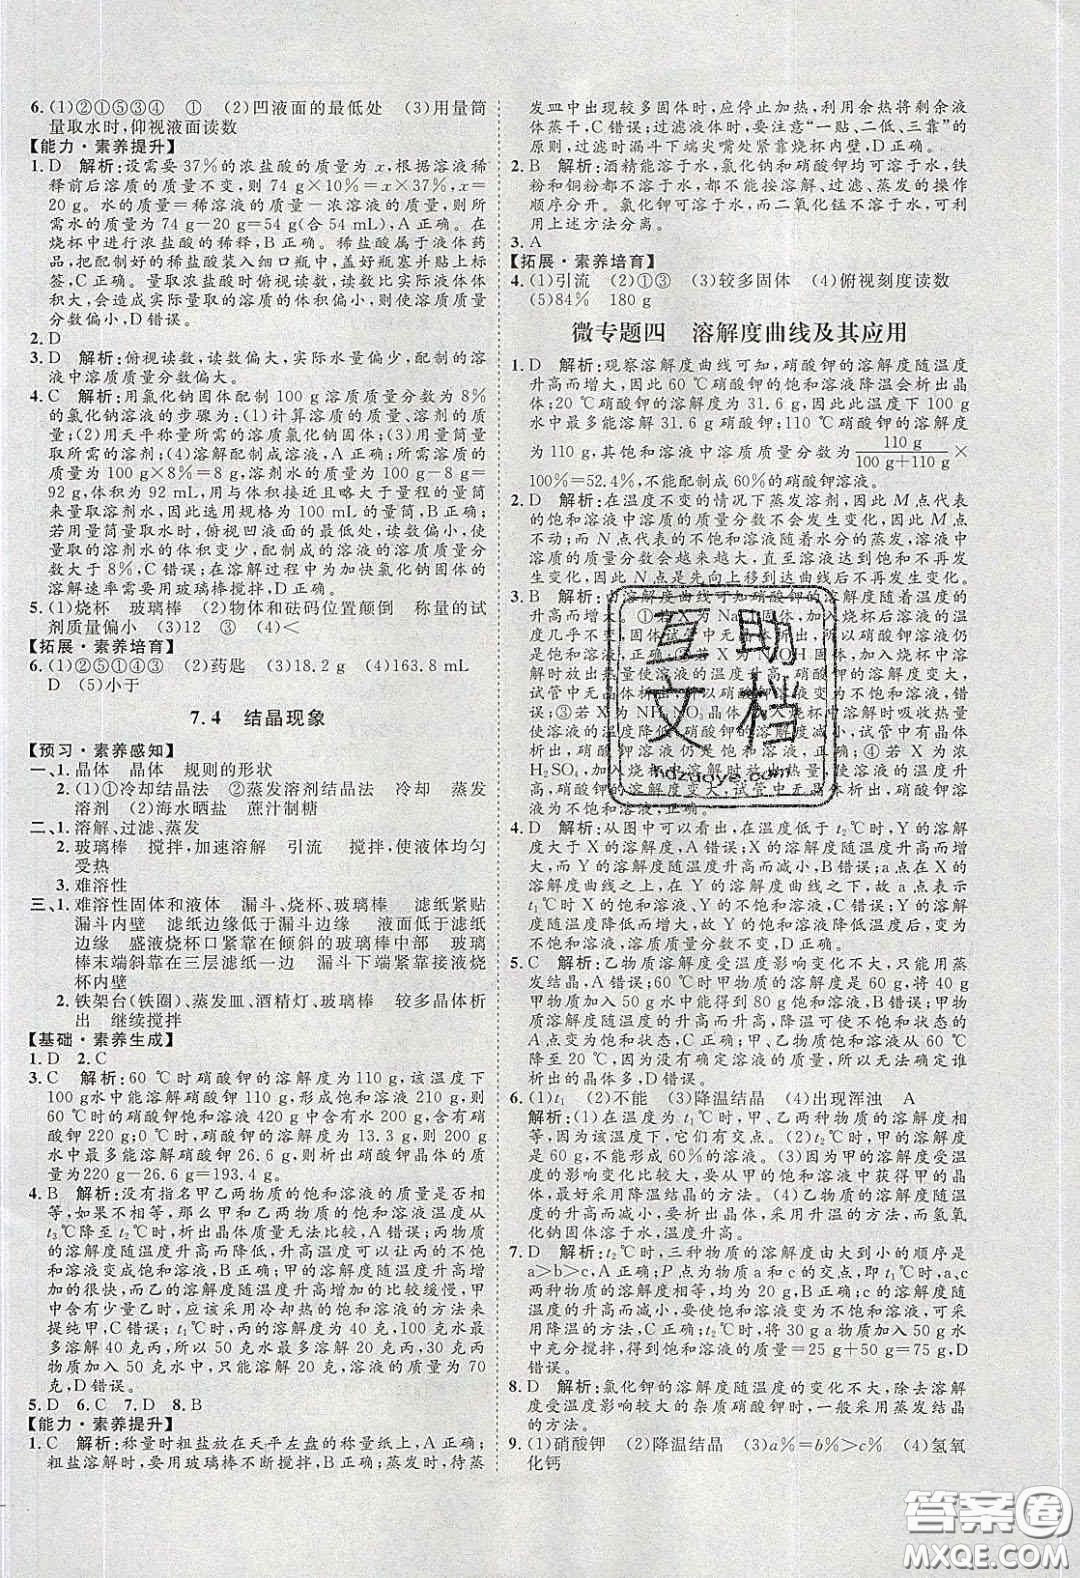 6. (1)②①⑤③④　①　(2)凹液面的最低处　(3)用量筒
量取水时,仰视液面读数
【能力·素养提升】
1. D　解析:设需要37%的浓盐酸的质量为x,根据溶液稀
释前后溶质的质量不变,则 74 g×10%=x×37%,x=
20 g。水的质量=稀溶液的质量-浓溶液的质量,则所
需水的质量为74 g-20 g=54 g(合54 mL),A正确。在
烧杯中进行浓盐酸的稀释,B正确。稀盐酸属于液体药
品,把配制好的稀盐酸装入细口瓶中,盖好瓶塞并贴上标
签,C正确。量取浓盐酸时俯视读数,读数比实际液体体
积大,会造成实际量取的溶质的体积偏小,则使溶质质量
分数偏小,D错误。
2. D
3. D　解析:俯视读数,读数偏大,实际水量偏少,配制的溶
液中溶质质量分数偏大。
4. C　解析:用氯化钠固体配制 100 g溶质质量分数为8%
的氯化钠溶液的步骤为:(1)计算溶质的质量、溶剂的质
量;(2)用天平称量所需的溶质氯化钠固体;(3)用量筒量
取所需的溶剂;(4)溶解配制成溶液,A正确。所需溶质
的质量为100 g×8%=8 g,溶剂水的质量为100 g-8 g=
92 g,体积为 92 mL,用与体积接近且略大于体积的量筒
来量取溶剂水,因此选用规格为100 mL的量筒,B正确;
若用量筒量取水时,俯视凹液面的最低处,读数偏大,使
量取的溶剂水的体积变少,配制成的溶液的溶质质量分
数大于8%,C错误;在溶解过程中为加快氯化钠固体的
溶解速率需要用玻璃棒搅拌,D正确。
5. (1)烧杯　玻璃棒　(2)物体和砝码位置颠倒　称量的试
剂质量偏小　(3)12　③　(4)<
【拓展·素养培育】
6. (1)②⑤①④③　(2)药匙　(3)18.2 g　(4)163.8 mL
D　(5)小于
7.4　结晶现象
【预习·素养感知】
一、1. 晶体　晶体　规则的形状
2. (1)①冷却结晶法　②蒸发溶剂结晶法　冷却　蒸发
溶剂　(2)海水晒盐　蔗汁制糖
二、1. 溶解、过滤、蒸发
2. 玻璃棒　搅拌,加速溶解　引流　搅拌,使液体均匀
受热
3. 难溶性
三、1. 难溶性固体和液体　漏斗、烧杯、玻璃棒　滤纸紧贴
漏斗内壁　滤纸边缘低于漏斗边缘　液面低于滤纸
边缘　盛液烧杯口紧靠在倾斜的玻璃棒中部　玻璃
棒末端斜靠在三层滤纸一边　漏斗下端紧靠烧
杯内壁
2. 铁架台(铁圈)、蒸发皿、酒精灯、玻璃棒　较多晶体析
出　继续搅拌
【基础·素养生成】
1. D　2. C
3. C　解析:60 ℃时硝酸钾的溶解度为110 g,该温度下
100 g水中能溶解硝酸钾110 g,形成饱和溶液210 g,则
60 ℃时的硝酸钾饱和溶液 420 g中含有水 200 g、含有
硝酸钾220 g;0 ℃时,硝酸钾的溶解度为13.3 g,则200 g
水中最多能溶解硝酸钾26.6 g,则析出硝酸钾晶体的
质量为220 g-26.6 g=193.4 g。
4. B　解析:没有指名甲乙两物质的饱和溶液的质量是否相
等,如果不相等,那么甲和乙两物质的饱和溶液温度从
t₃℃降至t₂℃时,析出晶体质量无法比较,A错误;因为甲
乙两物质的溶解度随温度升高而升高,升高温度可以让丙的不饱
和溶液变成饱和溶液,B正确;甲的溶解度随温度升高增
加的很快,而乙的溶解度随温度升高增加的比较缓慢,甲
中含有少量乙时,应该采用冷却热的饱和溶液的方法来
提纯甲,C错误;t₁℃时,甲的溶解度为 40 克,100 克水中
最多溶解 40 克,50 克水中最多溶解 20 克,t₁℃时,30 克
两物质加入 50 克水中,只能溶解 20 克,溶液的质量为 70
克,D错误。
5. D　6. C　7. D　8. B
【能力·素养提升】
1. C　解析:称量时粗盐放在天平左盘的称量纸上,A正确;
粗盐溶解时,要用玻璃棒不断搅拌,B正确;蒸发时,待蒸
发皿中出现较多固体时,应停止加热,利用余热将剩余液
体蒸干,C错误;过滤液体时,要注意“一贴、二低、三靠”的
原则,过滤时漏斗下端尖嘴处紧靠烧杯内壁,D正确。
2. B　解析:酒精能溶于水,氯化钠和硝酸钾均可溶于水,铁
粉和铜粉都不溶于水,都不能按溶解、过滤、蒸发的操作
顺序分开。氯化钾可溶于水,而二氧化锰不溶于水,可利
用上述方法分离。
3. A
【拓展·素养培育】
4. (1)引流　(2)①③　(3)较多固体　(4)俯视刻度读数
(5)84%　180 g
微专题四　溶解度曲线及其应用
1. D　解析:观察溶解度曲线可知,硝酸钾的溶解度随温度
升高而增大,因此60 ℃硝酸钾的饱和溶液降温会析出晶
体;20 ℃硝酸钾的溶解度为 31.6 g,因此此温度下 100 g
水中最多能溶解 31.6 g硝酸钾;110 ℃硝酸钾的溶解度
为110 g,其饱和溶液中溶质质量分数为110 g/(100 g+110 g)×
100%=52.4%,不能配制成60%的硝酸钾溶液。
2. D　解析:在温度不变的情况下蒸发溶剂,因此M点代表
的饱和溶液中溶质的质量分数不会发生变化,因此M点
不动;而N点代表的不饱和溶液随着水分的蒸发,溶液中
溶质的质量分数会越来越大,直至溶液达到饱和不再发
生变化,因此N点是先向上移到达曲线后不再发生变化。
3. B　解析:由溶解度曲线可知硝酸钾的溶解度随着温度
的升高而增大。①若X为Na固体,加入烧杯后溶液的
温度几乎不变,试管中无晶体析出,试管中溶液仍是
饱和溶液;②若X为NaOH固体,加入烧杯中溶
解时放出大量的热,使溶液温度升高,硝酸钾溶解度变大,
试管中无晶体析出,且溶液变为不饱和溶液,有错
误;③若X为NH₄NO₃晶体,溶解时吸收热量使
溶液的温度降低,硝酸钾的溶解度变小,试管中有晶体
析出,硝酸钾溶液仍是饱和溶液,正确;④若X为浓
H₂SO₄,加入烧杯中溶解时放出热量,试管中无晶体,且变
为不饱和溶液,正确。
4. D　解析:从图中可以看出,在温度低于t₂℃时,Y的溶解
度大于X的溶解度,A错误;X的溶解度随温度升高而增
大,而Y的溶解度随温度升高而减小,B错误;a点在X的
溶解度曲线之上,在Y的溶解度曲线之下,故a点表示
t₁℃时X的饱和溶液、Y的不饱和溶液,C错误;Y的溶解
度随温度升高而降低,故Y的饱和溶液升高温度后,溶解
度变小,溶质析出,溶液、溶质质量分数变小,D正确。
5. C　解析:乙物质溶解度受温度影响变化不大,只能用蒸
发结晶,A错误;t₂℃时,甲物质溶解度是60 g,将40 g
甲物质加入 50 g水中能得到80 g溶液,B错误;甲物质
溶解度随温度的升高而升高,可以使不饱和的溶液由
A点变为饱和状态,C正确;甲、乙物质的饱和溶液由t₂
℃降至t₁℃时,由于没有确定溶液的量,所以无法确定谁
析出的晶体多,D错误。
6. (1)t₁　(2)不能　(3)降温结晶　(4)出现浑浊　A
解析:(1)在温度为t₁℃时,甲、乙两种物质的溶解度相
等,因为该温度下,它们有交点。(2)t₂℃时,甲的溶解度
是60 g,不能形成60%的溶液。(3)因为甲的溶解度受温
度的影响变化比较大,要从溶液中获得甲的晶体,
最好采用降温结晶的方法。(4)乙物质的溶解度随温度
的升高而减小,要使晶体析出,采用升温的方法,而氢氧
化钠固体溶于水,温度升高。
7. D　解析:t₂℃时,三种物质的溶解度由大到小的顺序是
a>b>c,A正确;P点为物质a和c的交点,即t₁℃时,a、c
两种物质的溶解度相等,均为20 g,B正确;c的溶解度随
温度的升高而减小,要使饱和溶液变为不饱和溶液,可采
用降温的方法,C正确;t₂℃时,将 30 g a物质加入 50 g
水中充分搅拌,得到溶液的质量=25 g+50 g=75 g,D
错误。
8. D　解析:氯化钾的溶解度随温度的变化不大,除去溶解
度受温度影响较大的杂质硝酸钾时应选用蒸发结晶
的方法。
9. (1)硝酸钾　(2)降温结晶　(3)a%=b%>c%　(4)氢氧
化钙
互助
文档
hdzuoye.com
答案圈
MXQE.COM